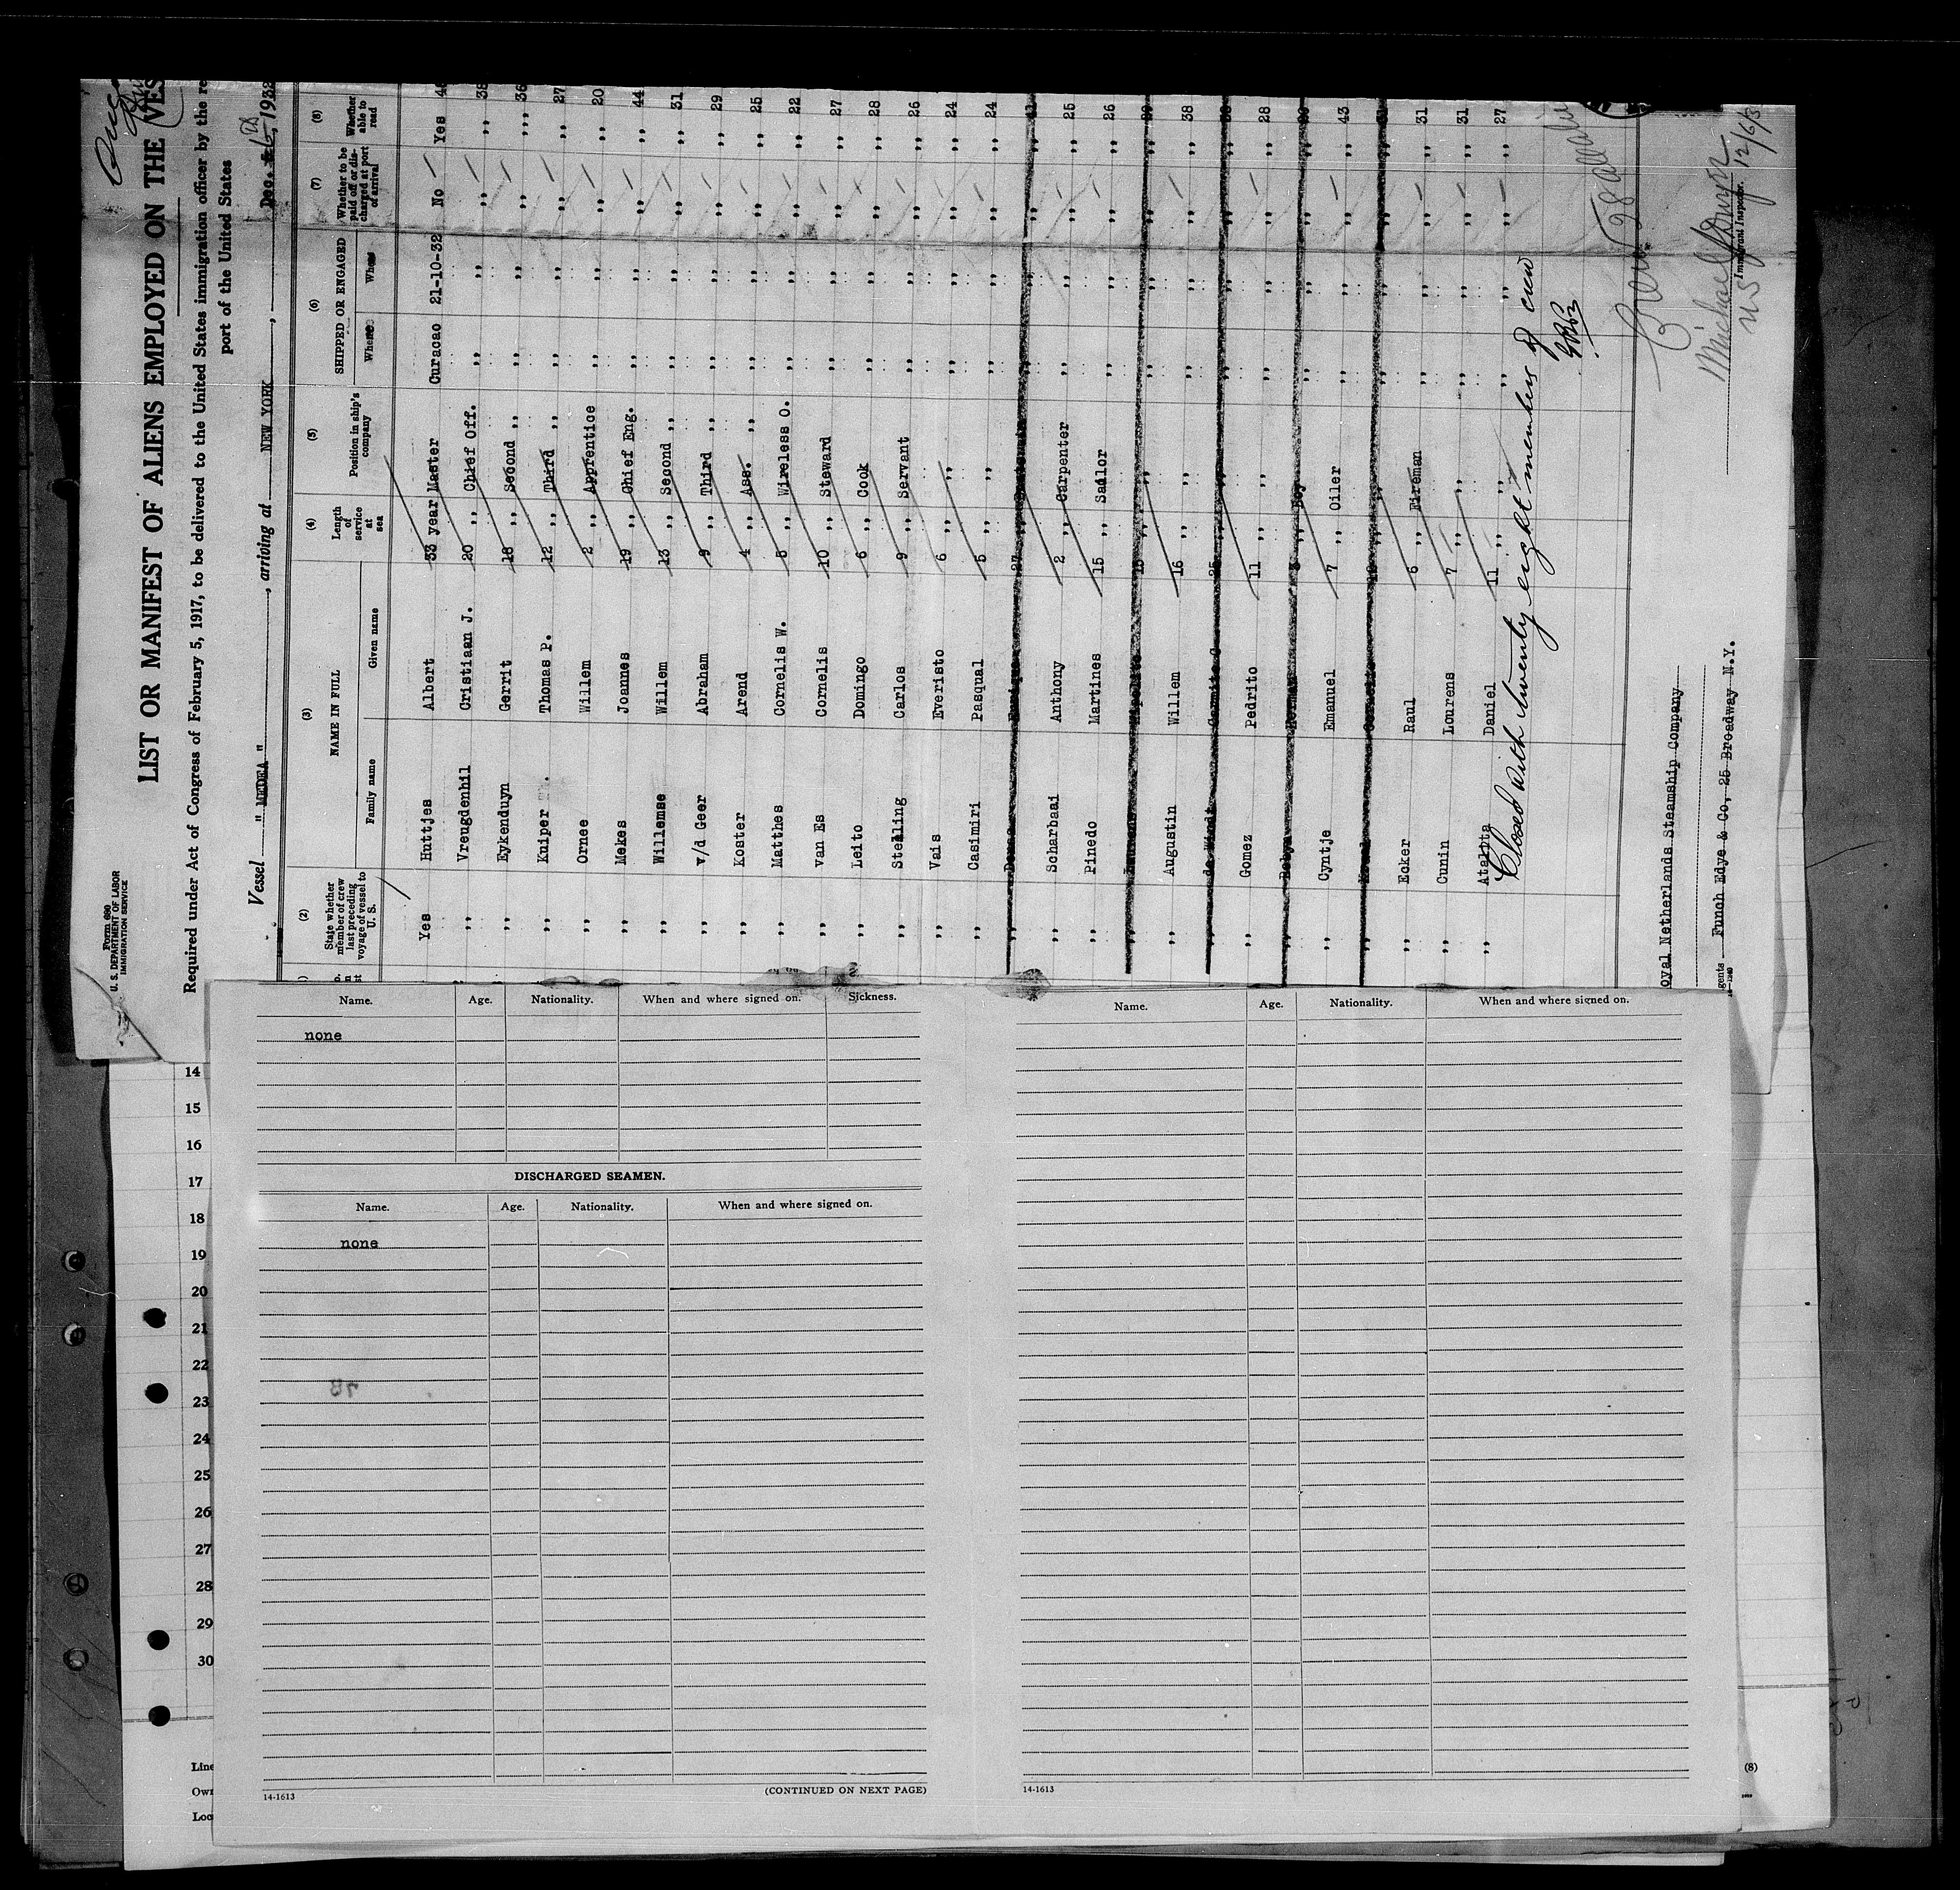 Form 680
U. S. DEPARTMENT OF LABOR
IMMIGRATION SERVICE
LIST OR MANIFEST OF ALIENS EMPLOYED ON THE VES
Required under Act of Congress of February 5, 1917, to be delivered to the United States immigration officer by the re
port of the United States
Vessel " MEDEA " , arriving at NEW YORK , Dec. 1932
(2) (3) (4) (5) (6) (7) (8)
State whether member of crew last preceding voyage of vessel to U. S. NAME IN FULL Length of service at sea Position in ship's company SHIPPED OR ENGAGED Whether to be paid off or discharged at port of arrival Whether able to read
Family name Given name Where When
Yes Huttjes Albert 33 year Master Curacao 21-10-32 No Yes
,, Vreugdenhil Cristiaan J. 20 ,, Chief Off. ,, ,, ,, ,, 38
,, Eykenduyn Gerrit 18 ,, Second ,, ,, ,, ,, ,,, 36
,, Kuiper Thomas P. 12 ,, Third ,, ,, ,, ,, ,, 27
,, Ornee Willem 2 ,, Apprentice ,, ,, ,, ,, 20
,, Mekes Joannes 19 ,, Chief Eng. ,, ,, ,, ,, 44
,, Willemse Willem 13 ,, Second ,, ,, ,, ,, ,, 31
,, v/d Geer Abraham 9 ,, Third ,, ,, ,, ,, ,, 29
,, Koster Arend 4 ,, Ass. ,, ,, ,, ,, ,, 25
,, Matthes Cornelis W. 5 ,, Wireless O. ,, ,, ,, ,, 22
,, van Es Cornelis 10 ,, Steward ,, ,, ,, ,, 27
,, Leito Domingo 6 ,, Cook ,, ,, ,, ,, 28
,, Stelling Carlos 9 ,, Servant ,, ,, ,, ,, 26
,, Vais Everisto 6 ,, ,, ,, ,, ,, ,, 24
,, Casimiri Pasqual 5 ,, ,, ,, ,, ,, ,, 24
,, 27 ,, ,, ,, ,, ,, 41
,, Scharbaai Anthony 2 ,, Carpenter ,, ,, ,, ,, 25
,, Pinedo Martines 15 ,, Sailor ,, ,, ,, ,, 26
,, Hipolito ,, ,, ,, ,, ,, ,, 29
,, Augustin Willem 16 ,, ,, ,, ,, ,, ,, 38
,, de Windt ,, ,, ,, ,, ,, ,,
,, Gomez Pedrito 11 ,, ,, ,, ,, ,, ,, 28
,, ,, Boy ,, ,, ,, ,,
,, Cyntje Emanuel 7 ,, Oiler ,, ,, ,, ,, 43
,, ,, ,, ,, ,, ,, ,,
,, Ecker Raul 6 ,, Fireman ,, ,, ,, ,, 31
,, Cunin Lourens 7 ,, ,, ,, ,, ,, ,, 31
,, Atalita Daniel 11 ,, ,, ,, ,, ,, ,, 27
Closed with twenty eight members of crew
Crew 28 all
oyal Netherlands Steamship Company
Michael J
Immigrant Inspector.
US
12/6/3
gents Funch Edye & Co, 25 Broadway N.Y.
Name. Age. Nationality. When and where signed on. Sickness.
none
DISCHARGED SEAMEN.
Name. Age. Nationality. When and where signed on.
none
14-1613 (CONTINUED ON NEXT PAGE)
Name. Age. Nationality. When and where signed on.
14-1613
14
15
16
17
18
19
20
21
22
23
24
25
26
27
28
29
30
Line
Own
Loc
(8)